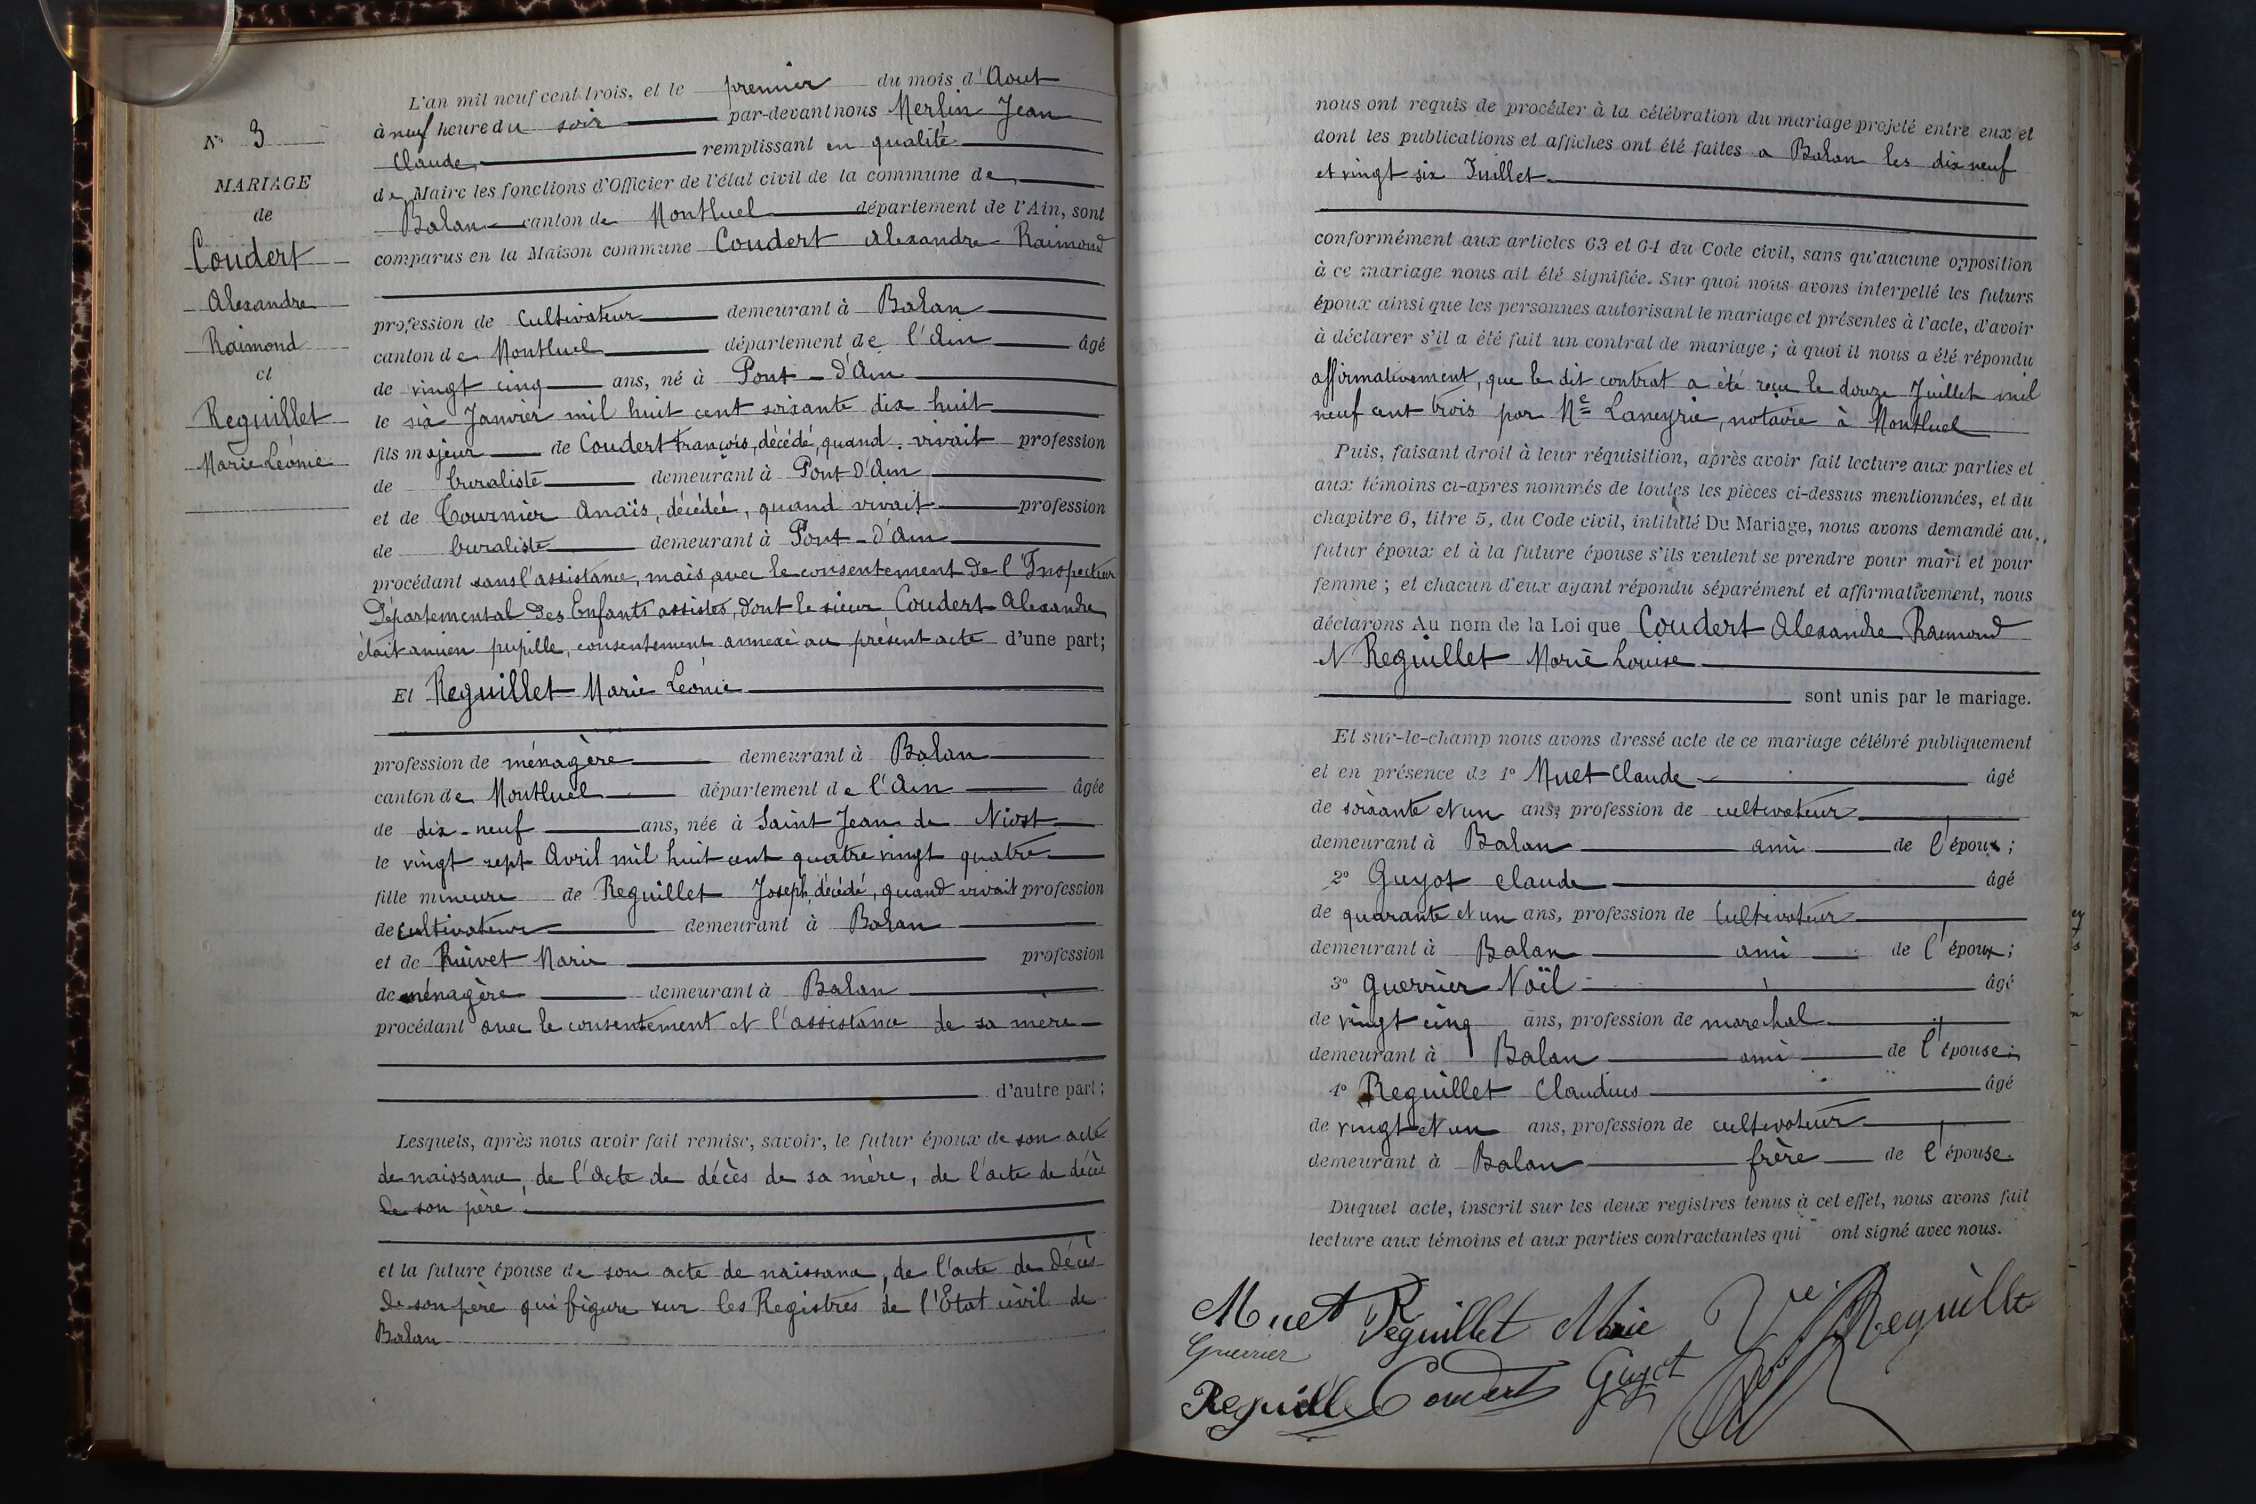 N° 3
MARIAGE
de
Coudert
Alexandre
Raimond
et
Reguillet
Marie Léonie
L'an mil neuf cent trois, et le premier du mois d'Aout
à neuf heure du soir par-devant nous Merlin Jean
Claude, remplissant en qualité
de Maire les fonctions d'Officier de l'état civil de la commune de
Balan canton de Montluel département de l'Ain, sont
comparus en la Maison commune Coudert Alexandre Raimond
profession de Cultivateur demeurant à Balan
canton de Montluel département de l'Ain âgé
de vingt cinq ans, né à Pont-d'Ain
le six Janvier mil huit cent soixante dix huit
fils majeur de Coudert François, décédé, quand vivait profession
de buraliste demeurant à Pont-d'Ain
et de Tournier Anaïs, décédée, quand vivait profession
de buraliste demeurant à Pont-d'Ain
procédant sans l'assistance, mais avec le consentement de l'Inspecteur
Départemental des Enfants assistés, dont le sieur Coudert Alexandre
était ancien pupille, consentement annexé au présent acte d'une part;
Et Reguillet Marie Léonie
profession de ménagère demeurant à Balan
canton de Montluel département de l'Ain âgée
de dix-neuf ans, née à Saint Jean de Niost
le vingt sept Avril mil huit cent quatre vingt quatre
fille mineure de Reguillet Joseph, décédé, quand vivait profession
de cultivateur demeurant à Balan
et de Ruivet Marie profession
de ménagère demeurant à Balan
procédant avec le consentement et l'assistance de sa mère
d'autre part;
Lesquels, après nous avoir fait remise, savoir, le futur époux de son acte
de naissance, de l'acte de décès de sa mère, de l'acte de décès
de son père.
et la future épouse de son acte de naissance, de l'acte de décès
de son père qui figure sur les Registres de l'Etat civil de
Balan
nous ont requis de procéder à la célébration du mariage projeté entre eux et
dont les publications et affiches ont été faites a Balan les dix neuf
et vingt six Juillet
conformément aux articles 63 et 64 du Code civil, sans qu'aucune opposition
à ce mariage nous ait été signifiée. Sur quoi nous avons interpellé les futurs
époux ainsi que les personnes autorisant le mariage et présentes à l'acte, d'avoir
à déclarer s'il a été fait un contrat de mariage; à quoi il nous a été répondu
affirmativement, que le dit contrat a été reçu le douze Juillet mil
neuf cent trois par Me Laneyrie, notaire à Montluel
Puis, faisant droit à leur réquisition, après avoir fait lecture aux parties et
aux témoins ci-après nommés de toutes les pièces ci-dessus mentionnées, et du
chapitre 6, titre 5, du Code civil, intitulé Du Mariage, nous avons demandé au
futur époux et à la future épouse s'ils veulent se prendre pour mari et pour
femme; et chacun d'eux ayant répondu séparément et affirmativement, nous
déclarons Au nom de la Loi que Coudert Alexandre Raimond
et Reguillet Marie Louise
sont unis par le mariage.
Et sur-le-champ nous avons dressé acte de ce mariage célébré publiquement
et en présence de 1° Muet Claude âgé
de soixante et un ans, profession de cultivateur
demeurant à Balan ami de l'époux;
2° Guyot Claude âgé
de quarante et un ans, profession de Cultivateur
demeurant à Balan ami de l'époux;
3° Guerrier Noël âgé
de vingt cinq ans, profession de marechal
demeurant à Balan ami de l'épouse;
4° Reguillet Claudius âgé
de vingt et un ans, profession de cultivateur
demeurant à Balan frère de l'épouse.
Duquel acte, inscrit sur les deux registres tenus à cet effet, nous avons fait
lecture aux témoins et aux parties contractantes qui ont signé avec nous.
Muet Reguillet Marie Vve Reguillet
Guerrier
Reguillet Coudert Guyot